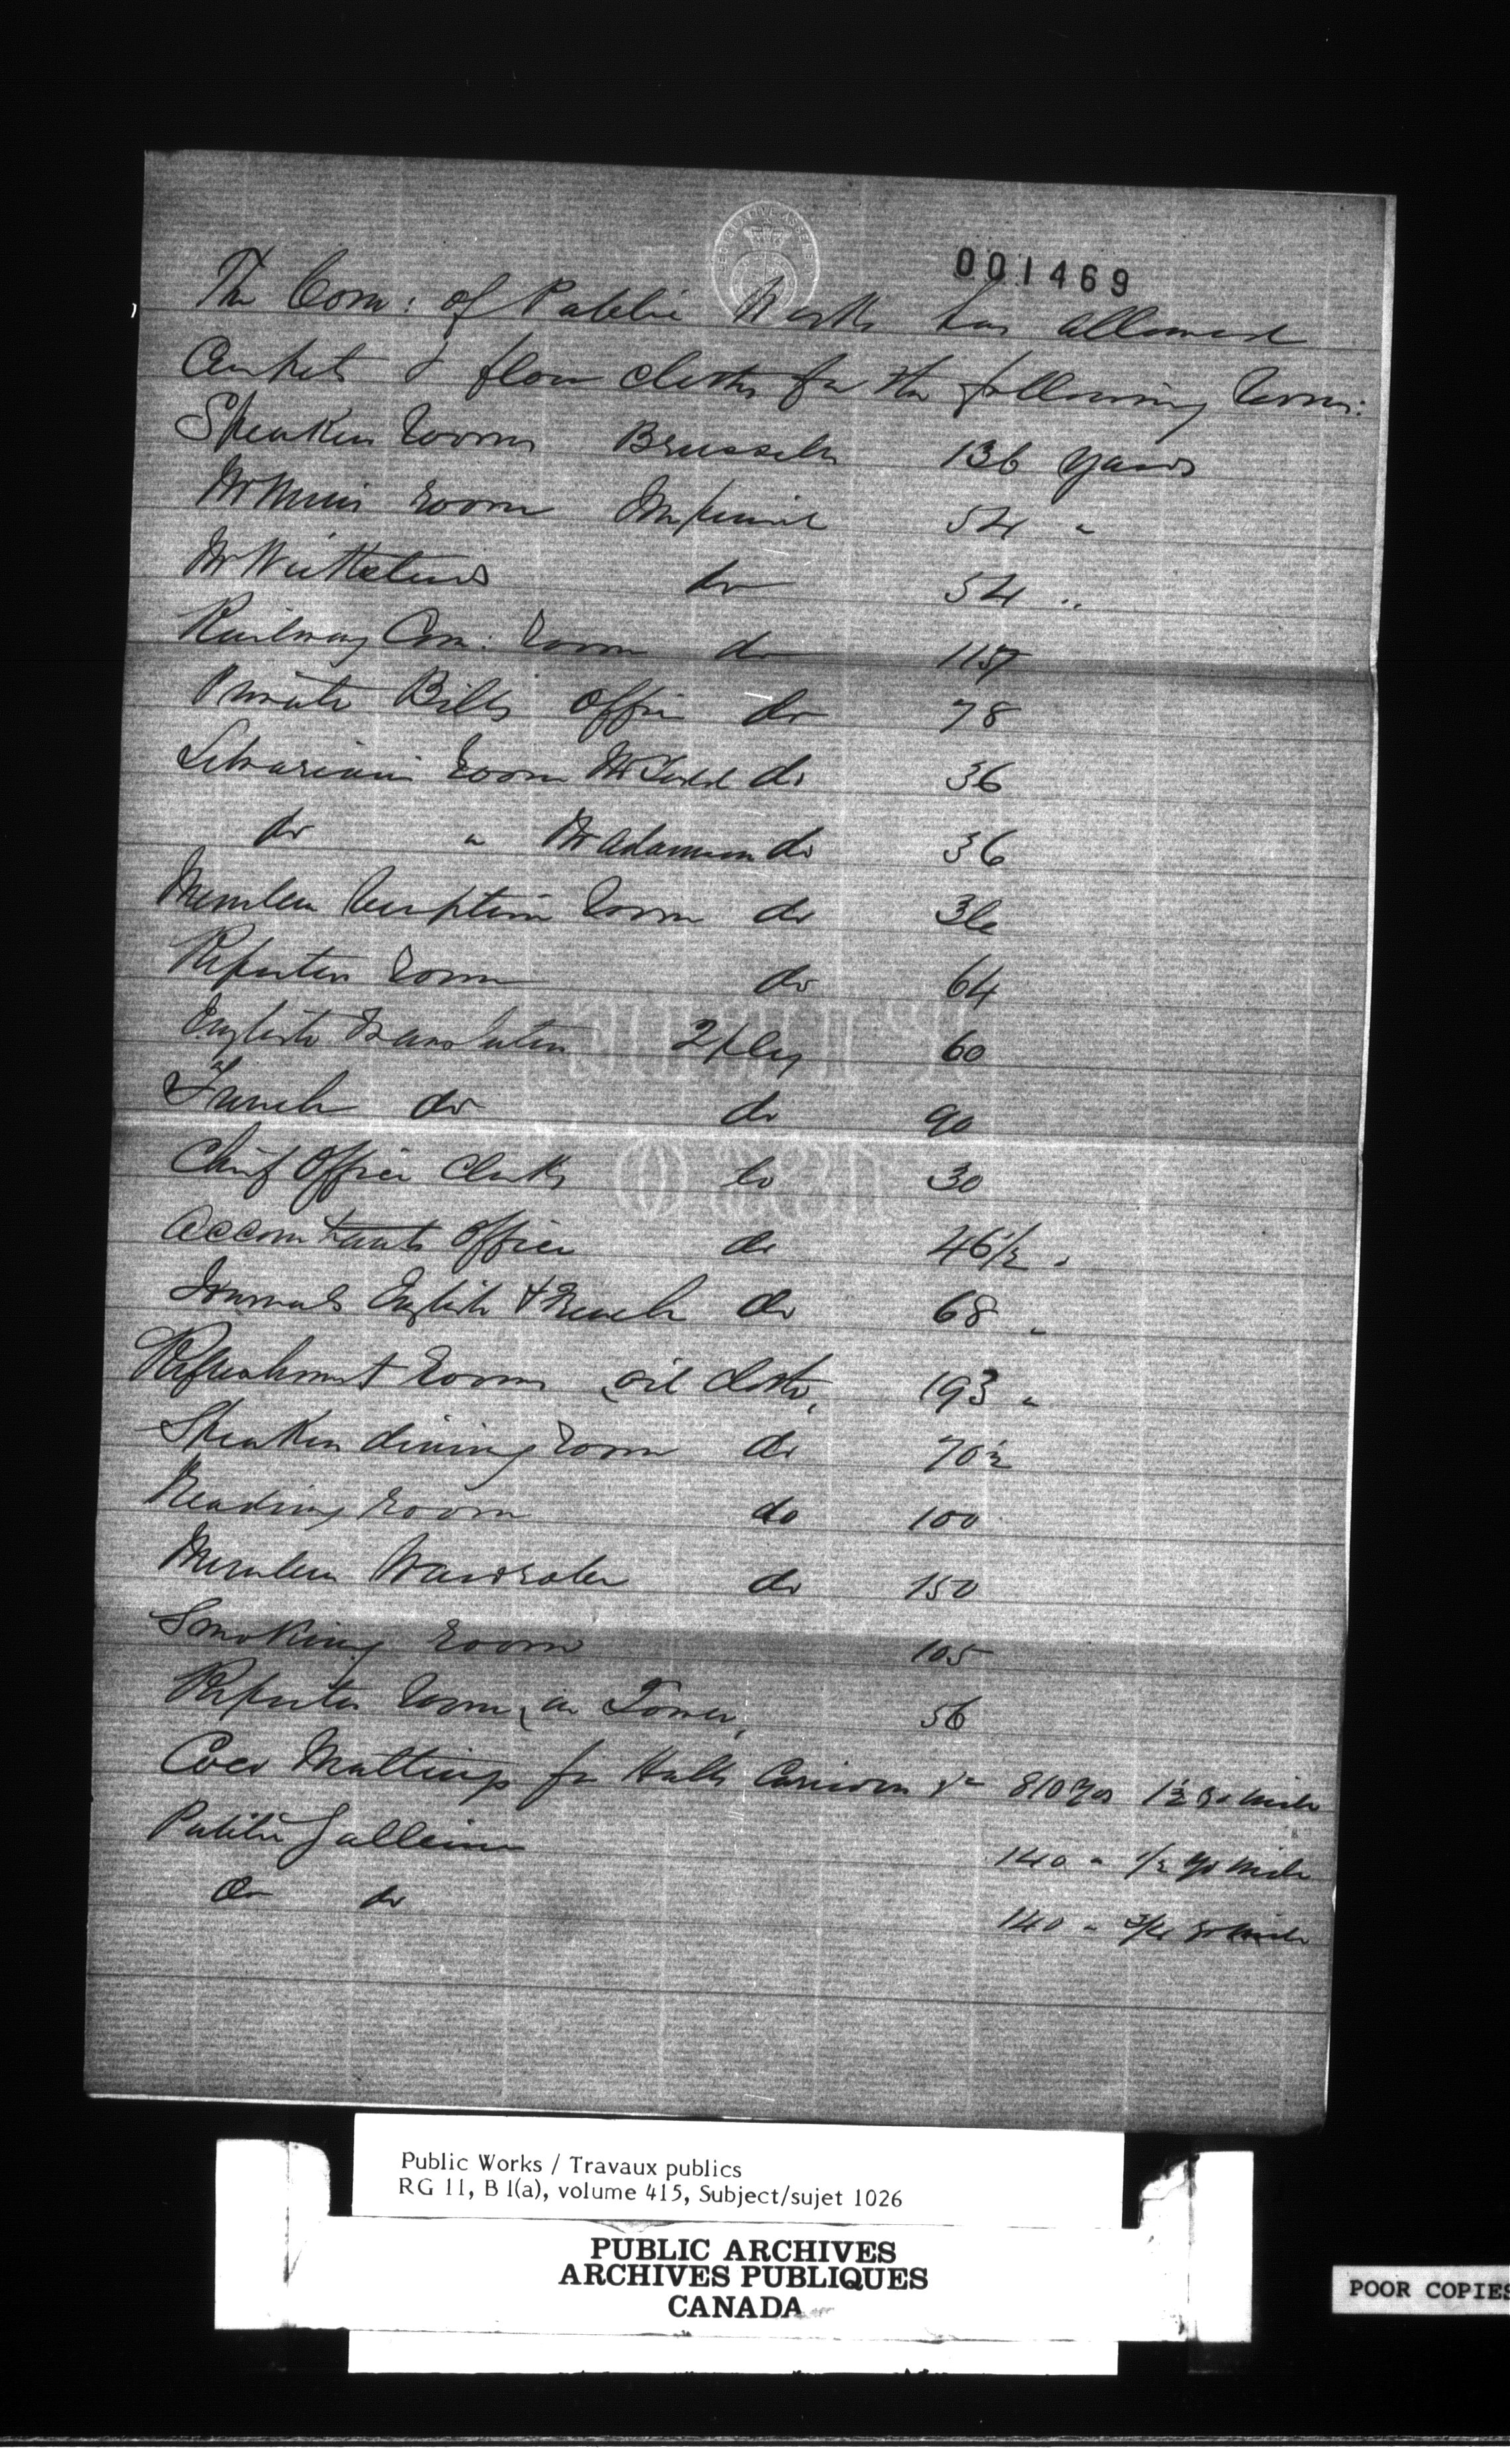 001469
The Com: of Public Works has allowed
Carpets & floor cloths for the following rooms:
Speakers rooms Brussels 136 yards
room Imperial 54 "
do 54 "
Railway Com: room do 117
Private Bills office do 78
Librarians room Mr Todd do 36
do " Mr Adamson do 36
Members reception room do 36
Reporters room do 64
English Translators 2 ply 60
French do do 90
Chief Office Clerks do 30
Accountants office do 46 1/2 "
Journals English & French do 68 "
Refreshment rooms oil cloth, 193 "
Speakers dining room do 70 1/2
Reading room do 100
Members Wardrobe do 150
Smoking room 105
Reporters room, in Tower, 56
Coco Mattings for Halls Corridors &c 810 yds 1 1/2 yd wide
Public Galleries 140 " 1/2 yd wide
do do 140 " 3/4 yd wide
Public Works / Travaux publics
RG 11, B 1(a), volume 415, Subject/sujet 1026
PUBLIC ARCHIVES
ARCHIVES PUBLIQUES
CANADA
POOR COPIES